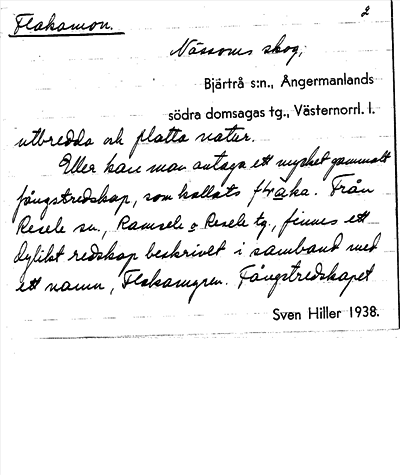 Flakamon. 2
Nässoms skog,
Bjärtrå s:n., Ångermanlands
södra domsagas tg., Västernorrl. l.
utbredda och platta natur.
Eller kan man antaga ett mycket gammalt
fångstredskap, som kallats flaka. Från
Resele sn., Ramsele o Resele tg., finnes ett
dylikt redskap beskrivet i samband med
ett namn, Flakamgren. Fångstredskapet
Sven Hiller 1938.